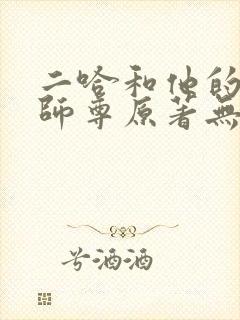 二哈和他的
師尊原著無
兮酒酒